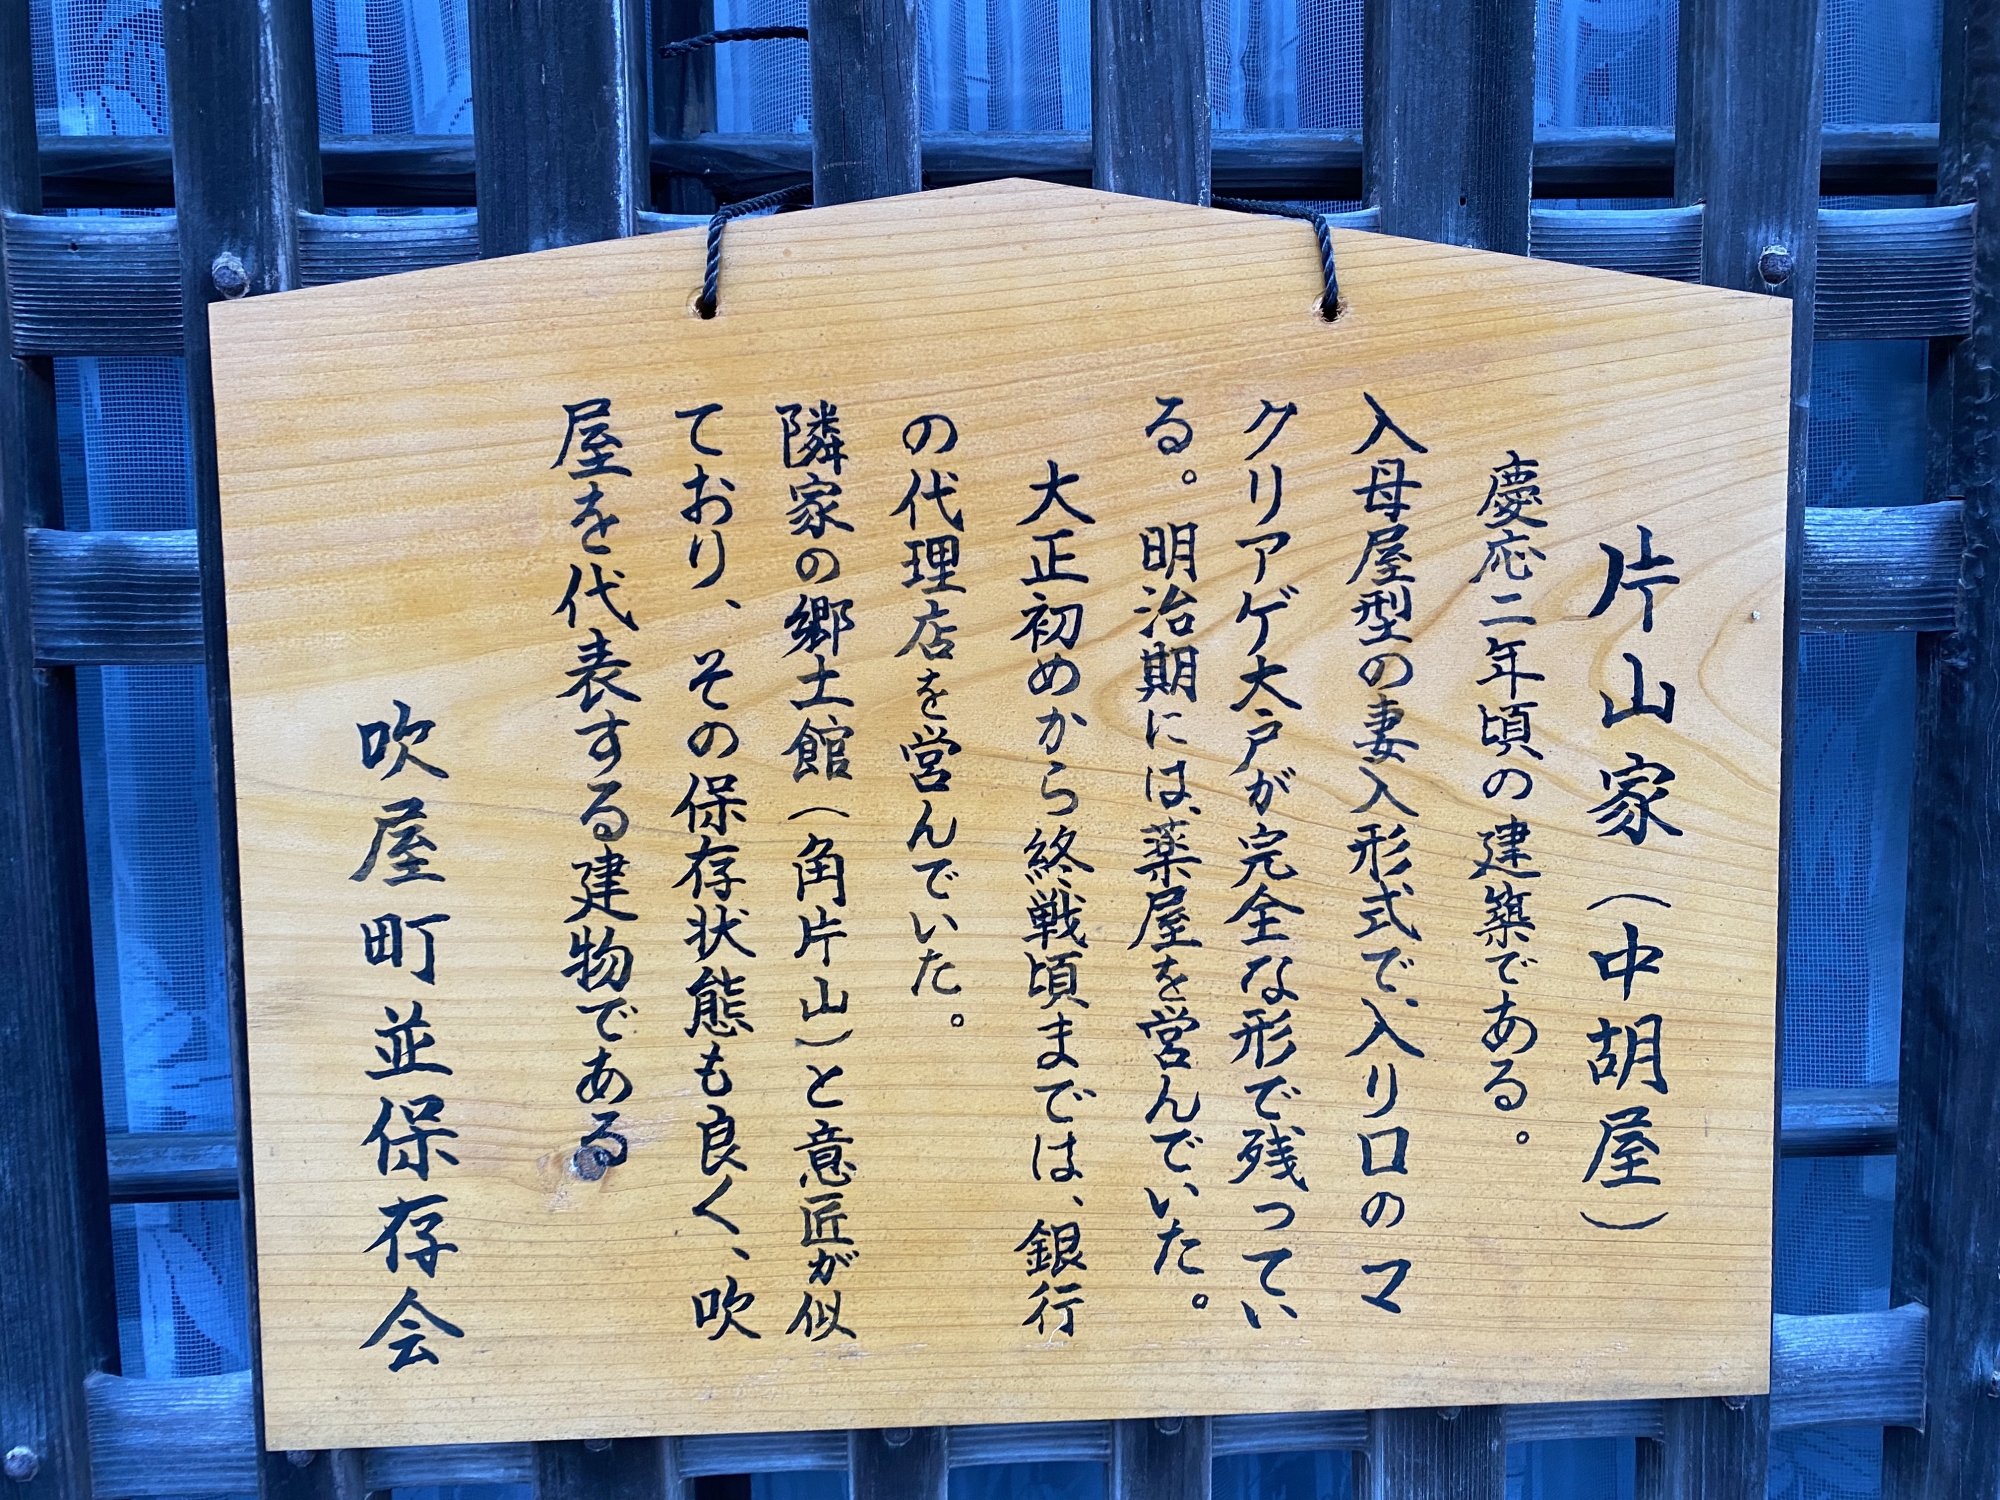 片山家（中胡屋）
慶応二年頃の建築である。
入母屋型の妻入形式で、入り口のマ
クリアゲ大戸が完全な形で残ってい
る。明治期には、薬屋を営んでいた。
大正初めから終戦頃までは、銀行
の代理店を営んでいた。
隣家の郷土館（角片山）と意匠が似
ており、その保存状態も良く、吹
屋を代表する建物である
吹屋町並保存会